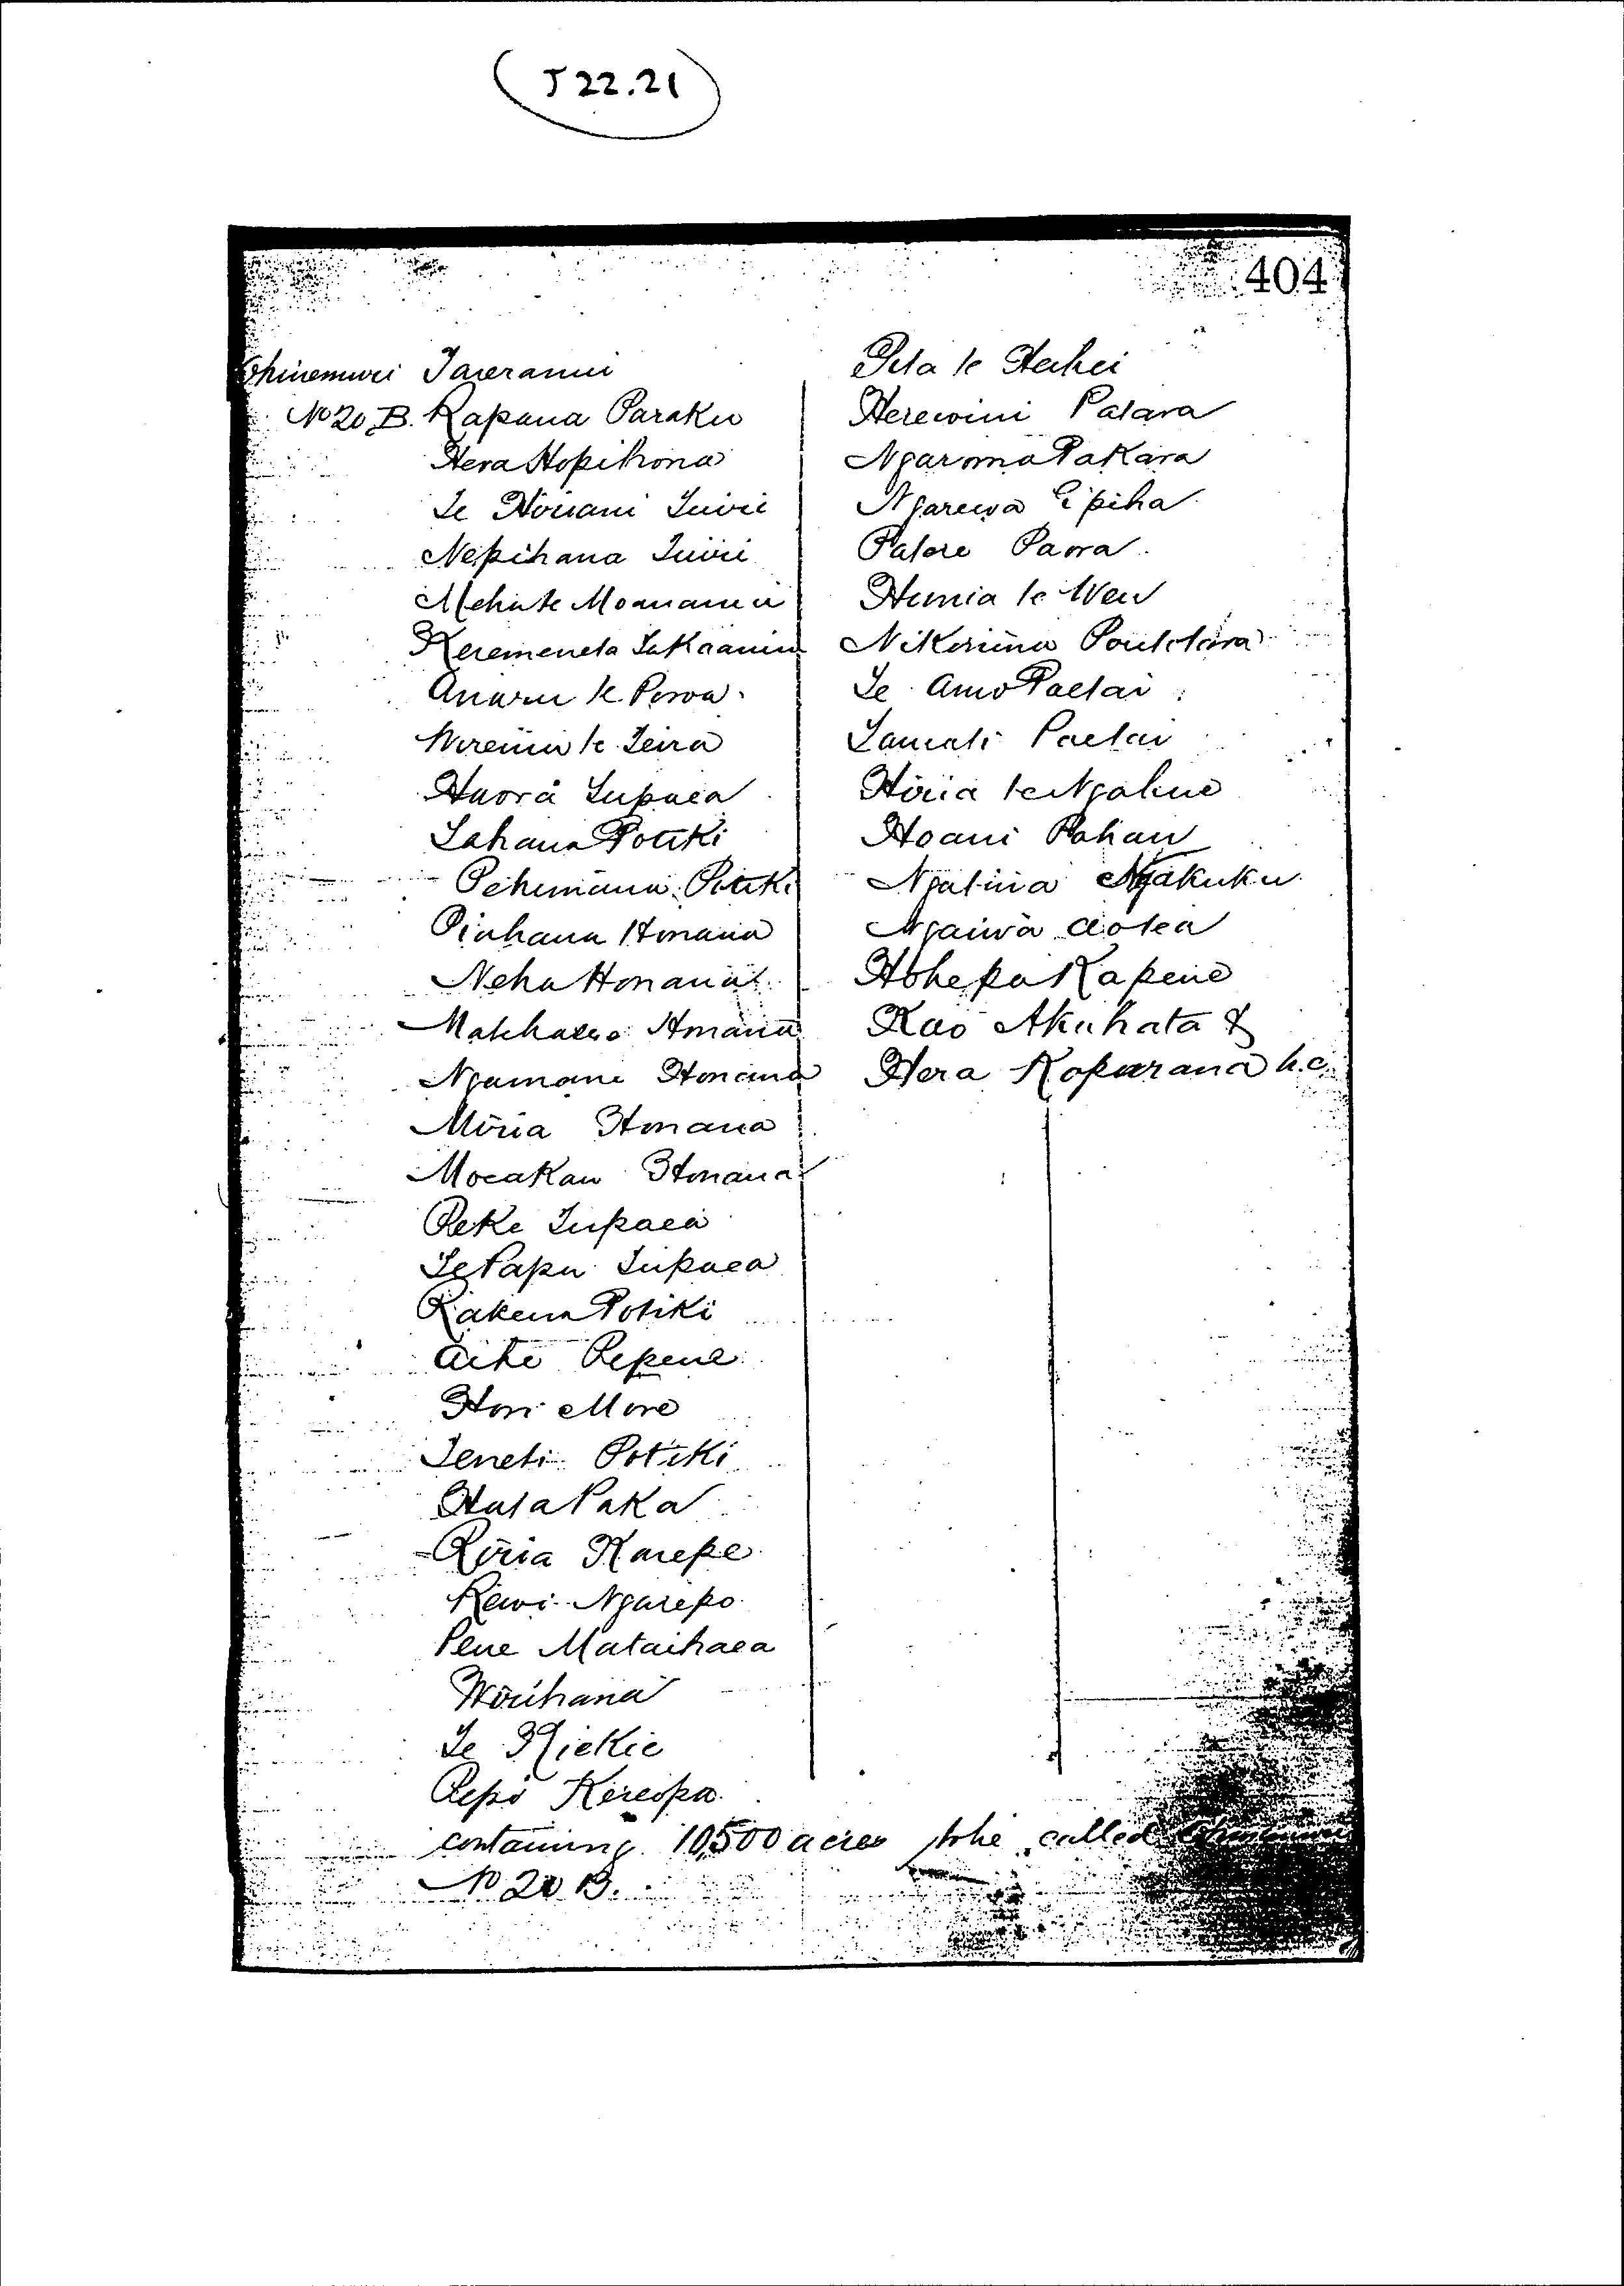 J 22.21
404
Ohinemuri Taueranui
No 20 B. Rapana Paraku
Hera Hopihona
Te Hiriani Tuiri
Nepihana Tuiri
Meha te Moananui
Keremeneta
Anaru te Poroa
Wiremu te Teira
Huora Tupaea
Tahana Potiki
Pehimana Potiki
Pirihana Honana
Neha Honana
Honana
Ngamane Honana
Miria Honana
Moeakau Honana
Reke Tupaea
Te Papu Tupaea
Rakena Potiki
Aihe Repene
Hori More
Teneti Potiki
Huta Paka
Riria Karepe
Rewi Ngarepo
Pene Mataihaea
Wirihana
Te
Repo Kereopa
Pita te Heihei
Herewini Patara
Ngaroma Pakara
Ngarewa Epiha
Patore Paora
Hunia te Weu
Nikorima Poutotara
Te Amo Paetai
Tamati Paetai
Hiria te Ngahue
Hoani Pahau
Ngatiria Ngakuku
Ngaiwa Aotea
Hohepa Kapene
Kao Akuhata &
Hera Kopurana h.c.
containing 10,500 acres to be called Ohinemuri
No 20 B.